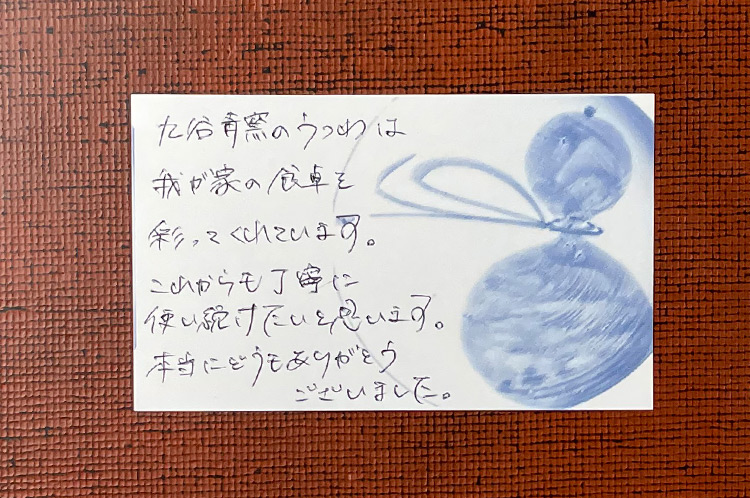 九谷青窯のうつわは
我が家の食卓を
彩ってくれています。
これからも丁寧に
使い続けたいと思います。
本当にどうもありがとう
ございました。